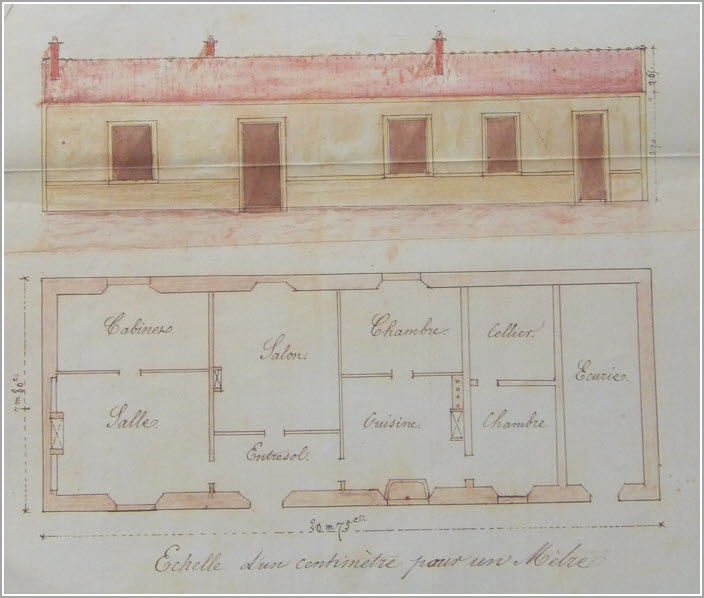 Cabinet.
Salon.
Chambre.
Cellier.
Ecurie.
Salle.
Entresol.
Cuisine.
Chambre
7m80c
20m75cm
Echelle d'un centimètre pour un Mètre